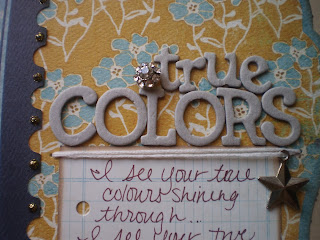 true
COLORS
I see your true
colours shining
through...
I see your true